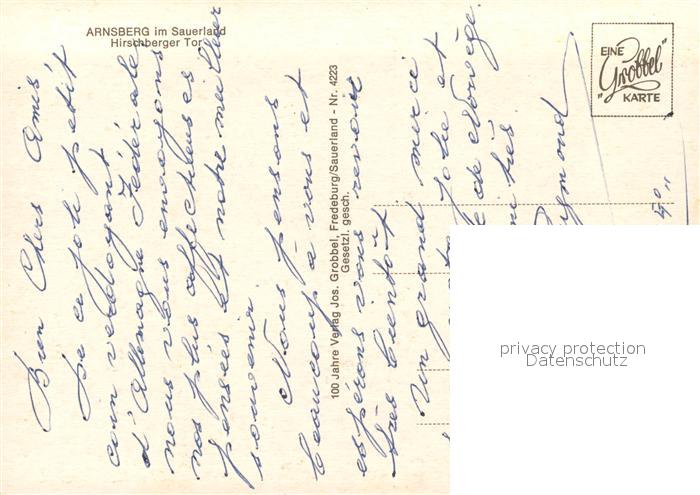 ARNSBERG im Sauerland
Hirschberger Tor
EINE
"Grobbel"
KARTE
100 Jahre Verlag Jos. Grobbel, Fredeburg/Sauerland - Nr. 4223
Gesetzl. gesch.
Bien Chers Amis
De ce joli petit
coin verdoyant
d'Allemagne Fédérale
nous vous envoyons
nos plus affectueuses
pensées et notre meilleur
souvenir.
Nous pensons
beaucoup à vous et
espérons vous revoir
très bientôt
Un grand merci
jolie et
de Norvège.
très
privacy protection
Datenschutz